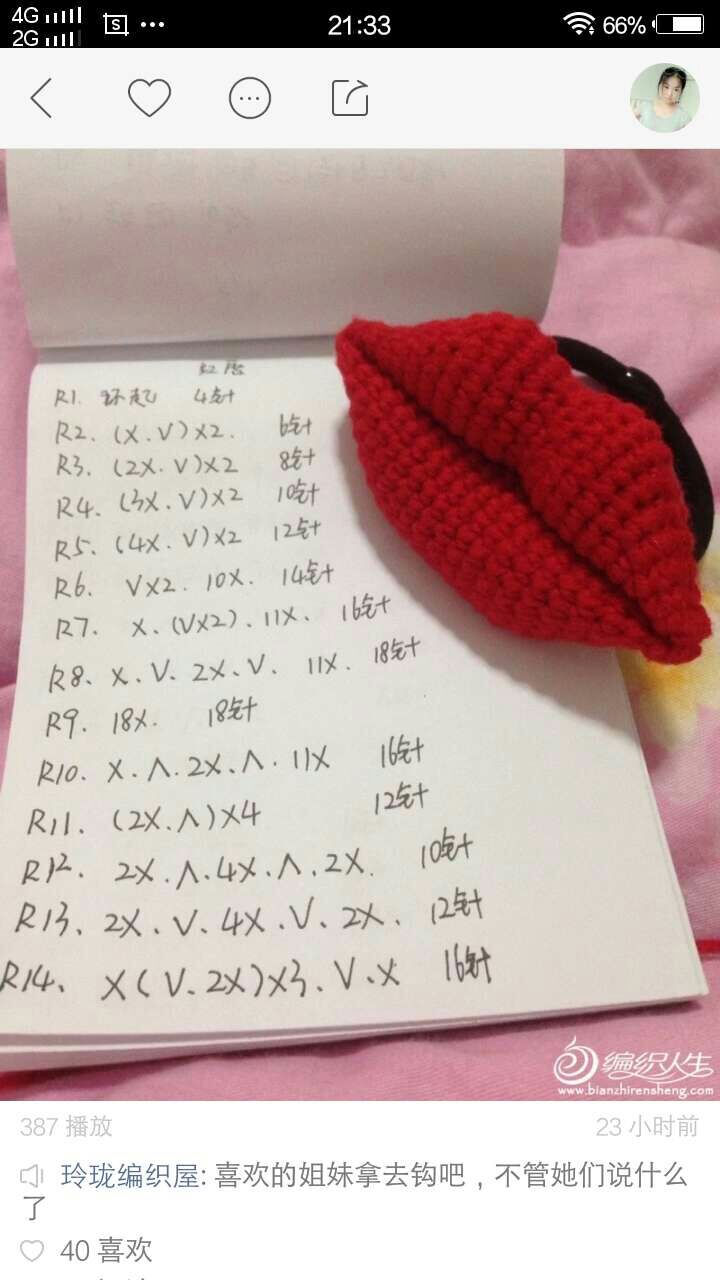 4G
2G
21:33
66%
红唇
R1. 环起 4针
R2. (X.V)X2. 6针
R3. (2X.V)X2 8针
R4. (3X.V)X2 10针
R5. (4X.V)X2 12针
R6. VX2. 10X. 14针
R7. X.(VX2).11X. 16针
R8. X.V.2X.V. 11X. 18针
R9. 18X. 18针
R10. X.Λ.2X.Λ.11X 16针
R11. (2X.Λ)X4 12针
R12. 2X.Λ.4X.Λ.2X. 10针
R13. 2X.V.4X.V.2X. 12针
R14. X(V.2X)X3.V.X 16针
编织人生
www.bianzhirensheng.com
387 播放 23 小时前
玲珑编织屋: 喜欢的姐妹拿去钩吧，不管她们说什么
了
40 喜欢